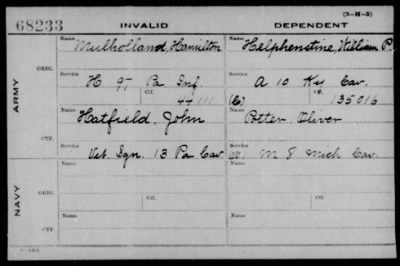 (3-H-5)
68233 INVALID DEPENDENT
Name Mulholland, Hamilton Name Helphenstine, William P.
ARMY
ORIG.
Service H 97 Pa Inf. Service A 10 Ky Cav.
Ctf. 44111 (C) Ctf. 135016
Name Hatfield, John Name Potter, Oliver
CTF.
Service Vet. Sgn. 13 Pa Cav. Service M 8 Mich Cav.
NAVY
ORIG.
Name Name
Service Service
Name Name
CTF.
Service Service